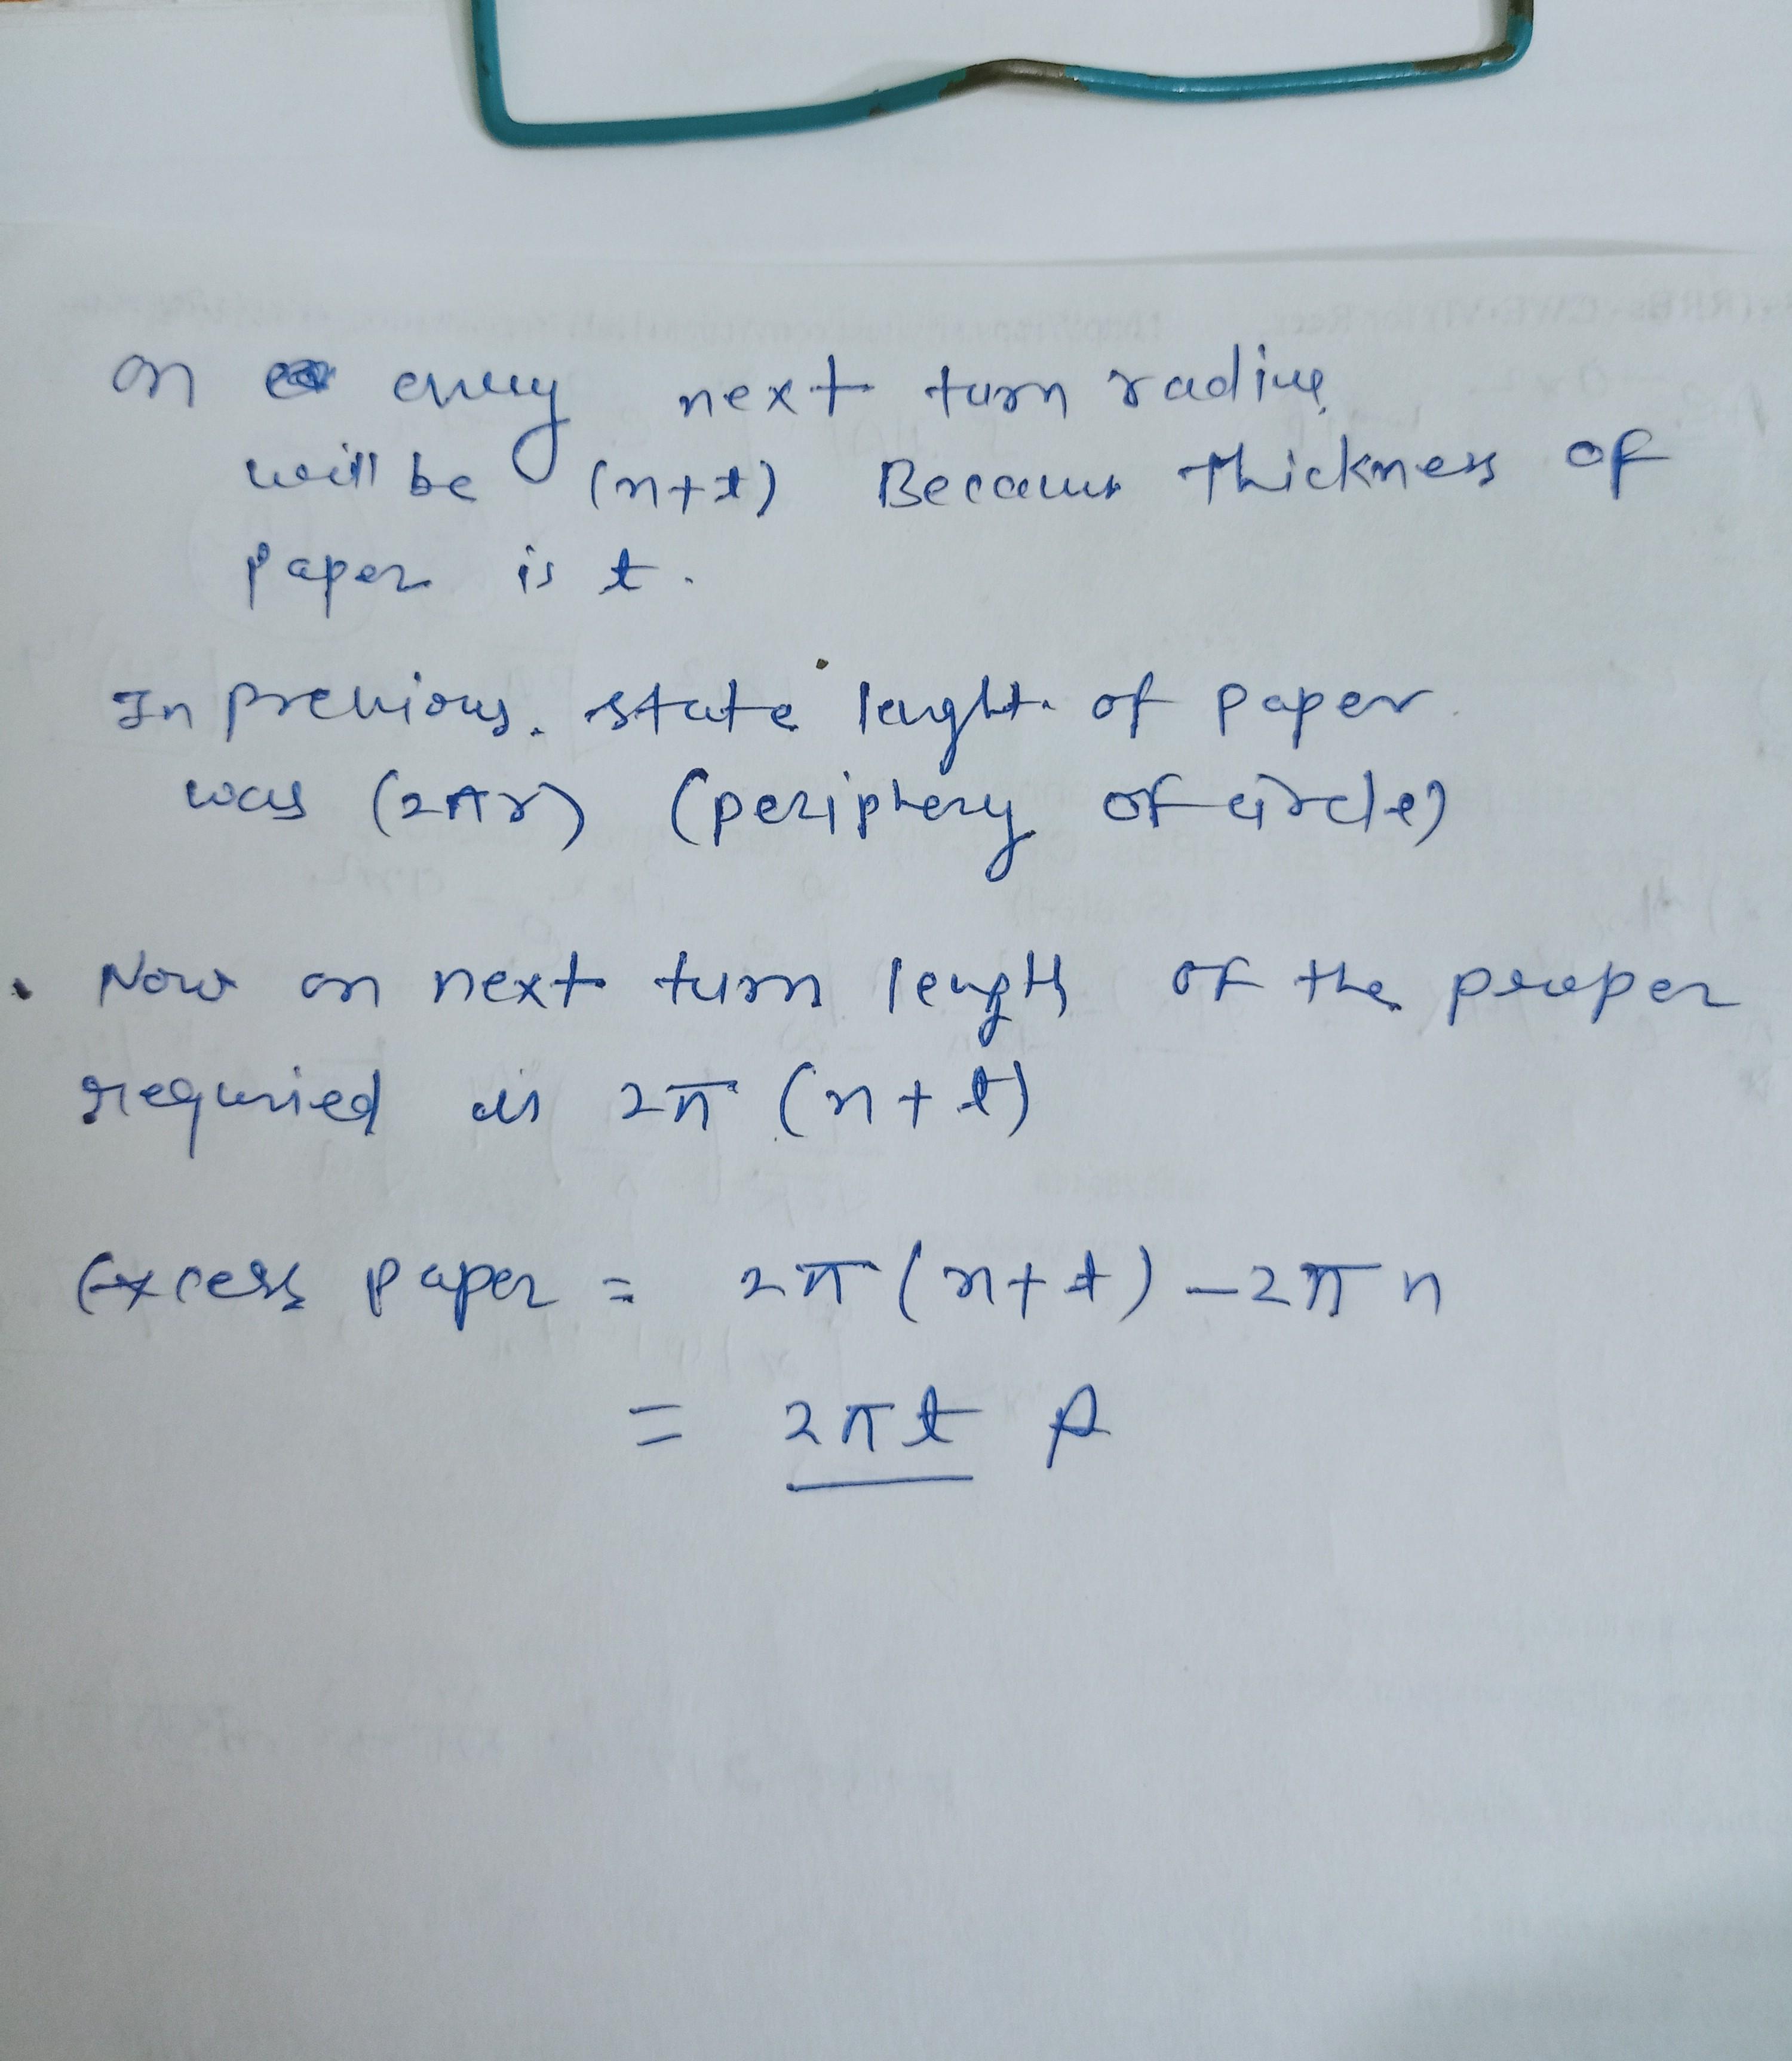 on every next turn radius
will be (r+t) Because thickness of
paper is t.
In previous. state lenght of paper
was (2πr) (periphery of circle)
Now on next turn length of the paper
requried is 2π (r+t)
Excess paper = 2π(r+t)-2πr
= 2πt